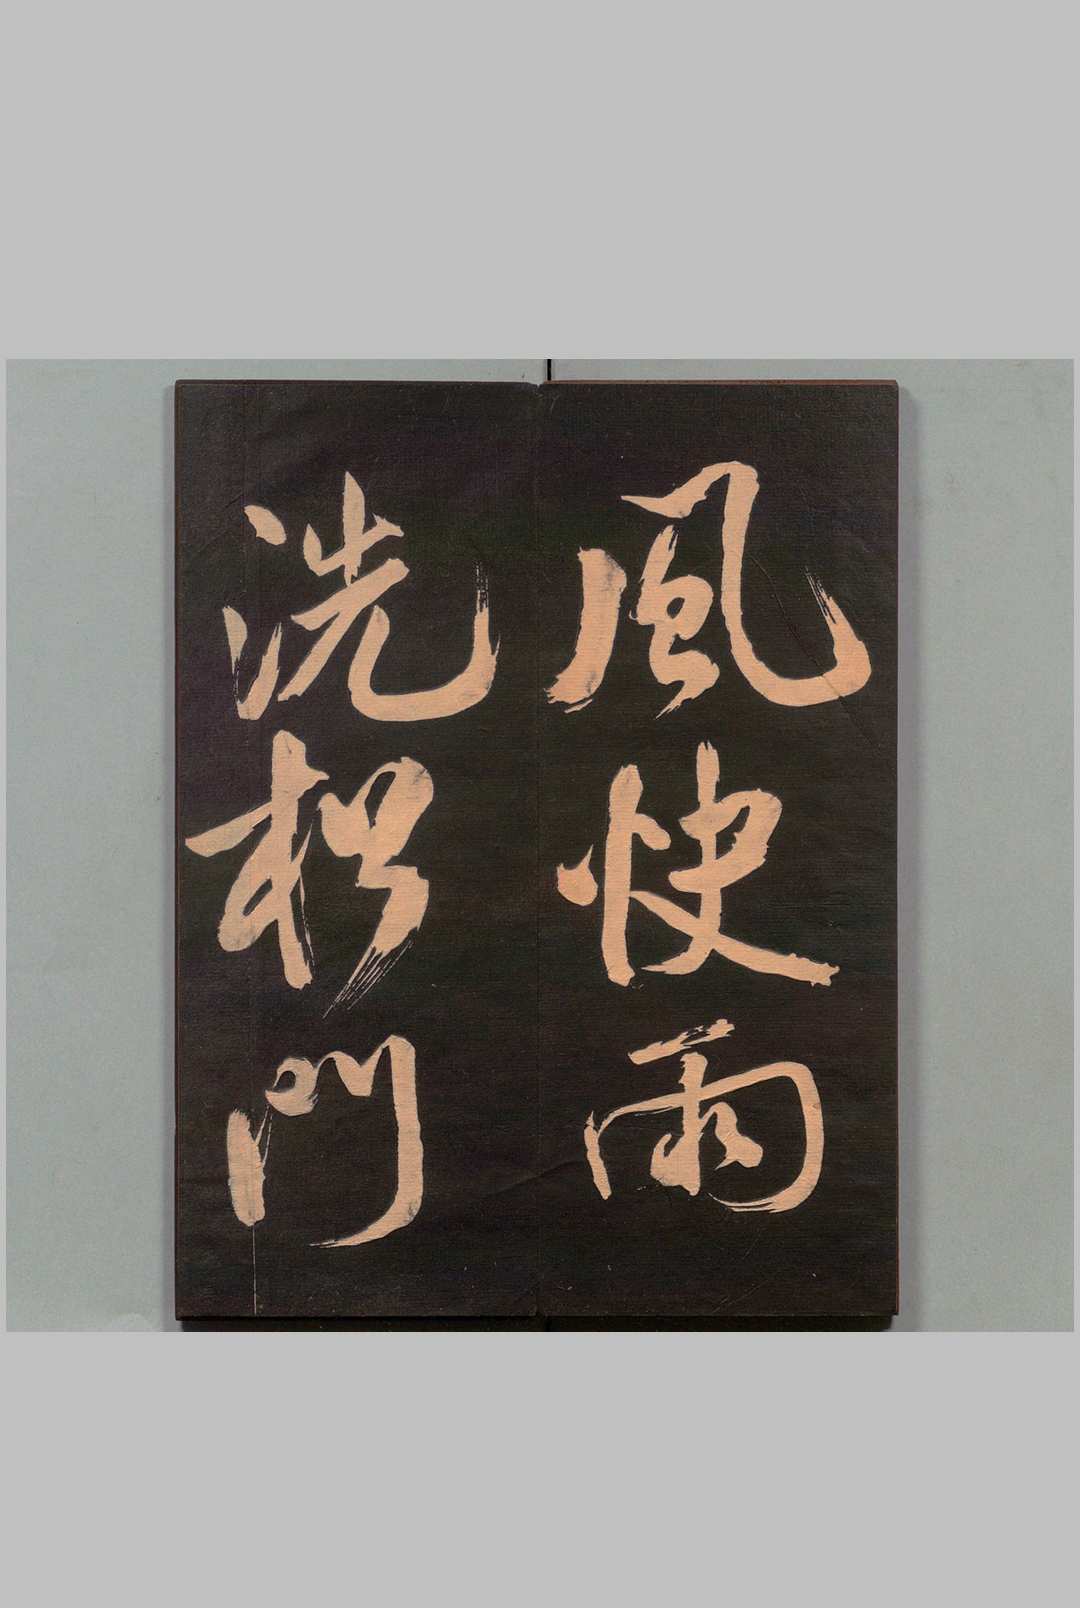 風快雨
洗門